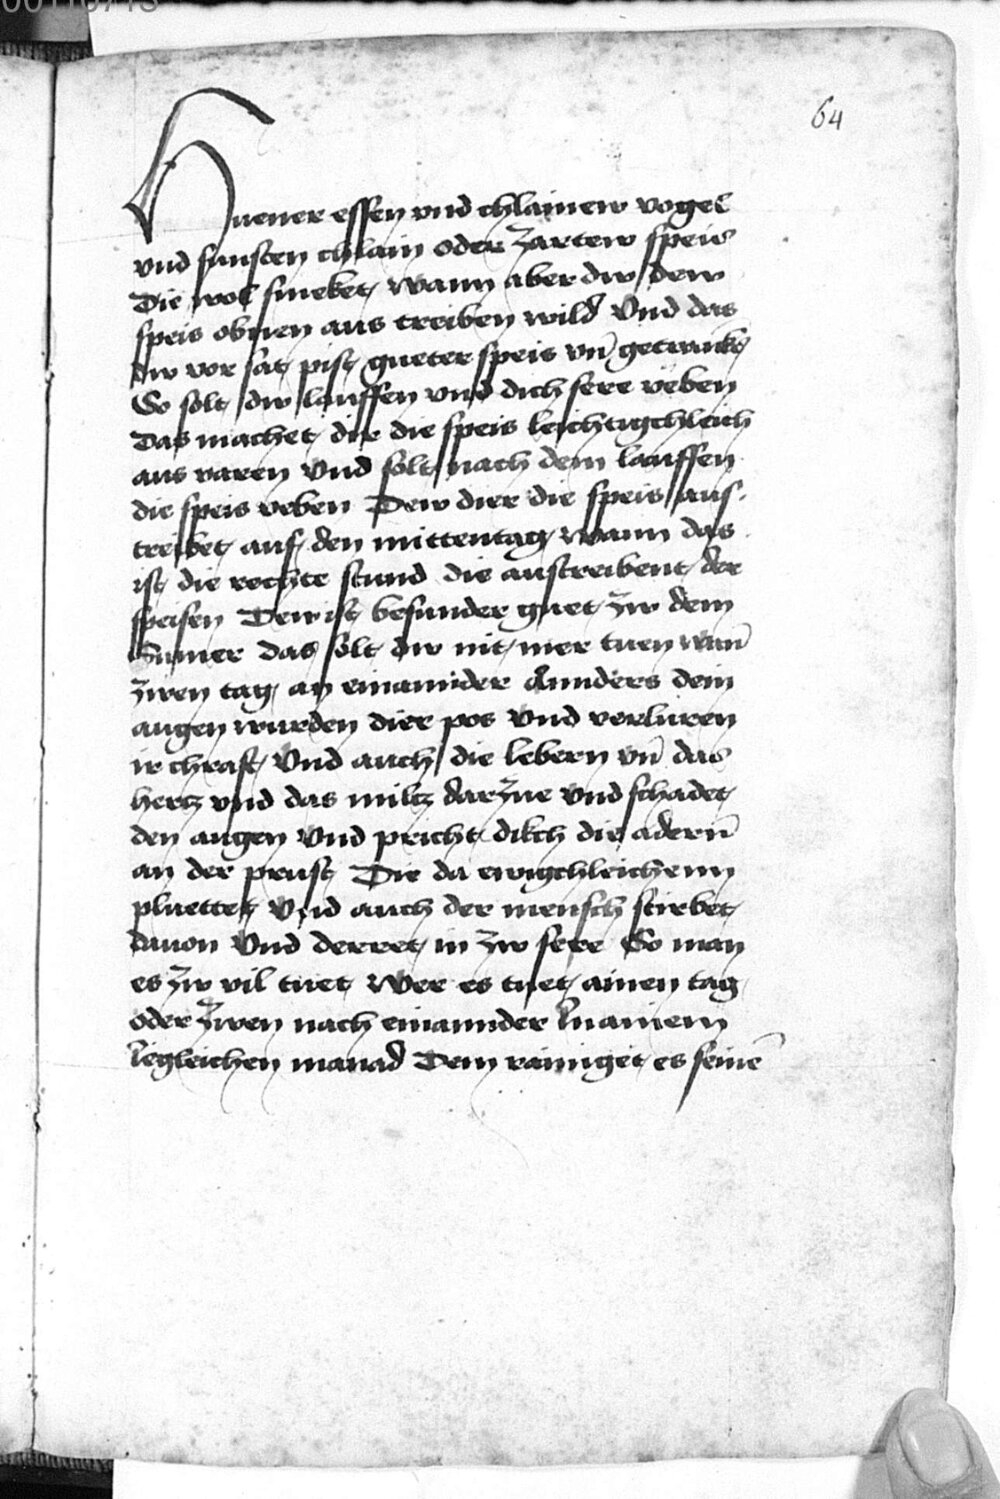 64
Huener essen vnd chlainew vogel
vnd sunsten chlain oder zartew speis
Die wol smeket, wann aber dw dew
speis obnen aus treiben wild Vnd das
dw vor sat pist gueter speis vn̄ getrankh
So solt dw lauffen vnd dich sere veben
Das machet dir die speis leichtigchleich
aus varen Vnd solt nach dem lauffen
die speis veben Dew dier die speis aus
treibet auf den mittentag Wann das
ist die rechte stund die austreibent der
speisen Dew ist besunder guet zw dem
Sumer das solt dw nit mer tuen wan̄
zwen tag an einannder Annders dein
augen wurden dier pos Vnd verluren
ir chraft Vnd auch die lebern vn̄ das
hertz vnd das miltz darzue Vnd schadet
den augen Vnd pricht dikch die adern̄
an der prust Die da ewigchleichenn
pluettet Vnd auch der mensch stirbet
dauon Vnd derret in zw sere So man
es zw vil tuet Wer es tuet ainen tag
oder zwen nach einannder Inainem
Iegleichen manad Dem rainiget es seinē